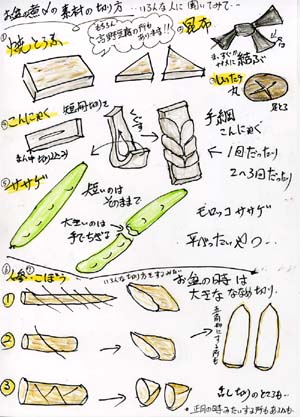 お盆の煮〆の素材の切り方…いろんな人に聞いてみて…
① 焼とうふ
もちろん
高野豆腐の所も
あります!!
④ 昆布
まっすぐか
ナナメに結ぶ
② こんにゃく
短冊切りで
まん中切り
くるっと
手綱
こんにゃく
1回だったり
2〜3回だったり
⑤ しいたけ
丸
③ ササゲ
短いのは
そのままで
大きいのは
手でちぎる
モロッコササゲ
平べったいやつ
人参・ごぼう
いろんな切り方をするみたい
お盆の時は
大きなななめ切り
①
②
③
乱切りのところも…
*正月の時みたいする所もあるみたい